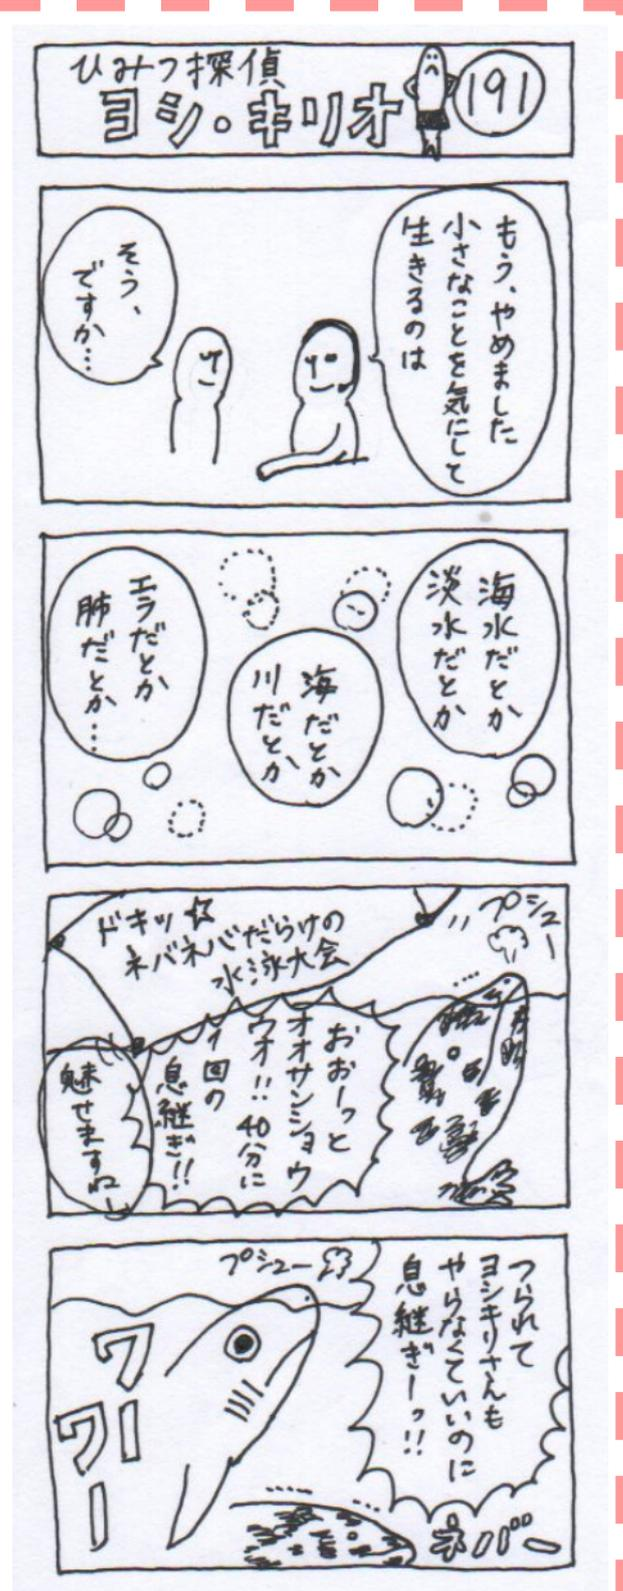 ひみつ探偵
ヨシ・キリオ
191
もう、やめました
小さなことを気にして
生きるのは
そう、
ですか…
海水だとか
淡水だとか
海だとか
川だとか
エラだとか
肺だとか…
プシュー
ドキッ☆
ネバネバだらけの
水泳大会
おおーっと
オオサンショウ
ウオ!!40分に
1回の
息継ぎ!!
魅せますねー
つられて
ヨシキリさんも
やらなくていいのに
息継ぎーっ!!
プシュー
ワー
ワー
ネバー